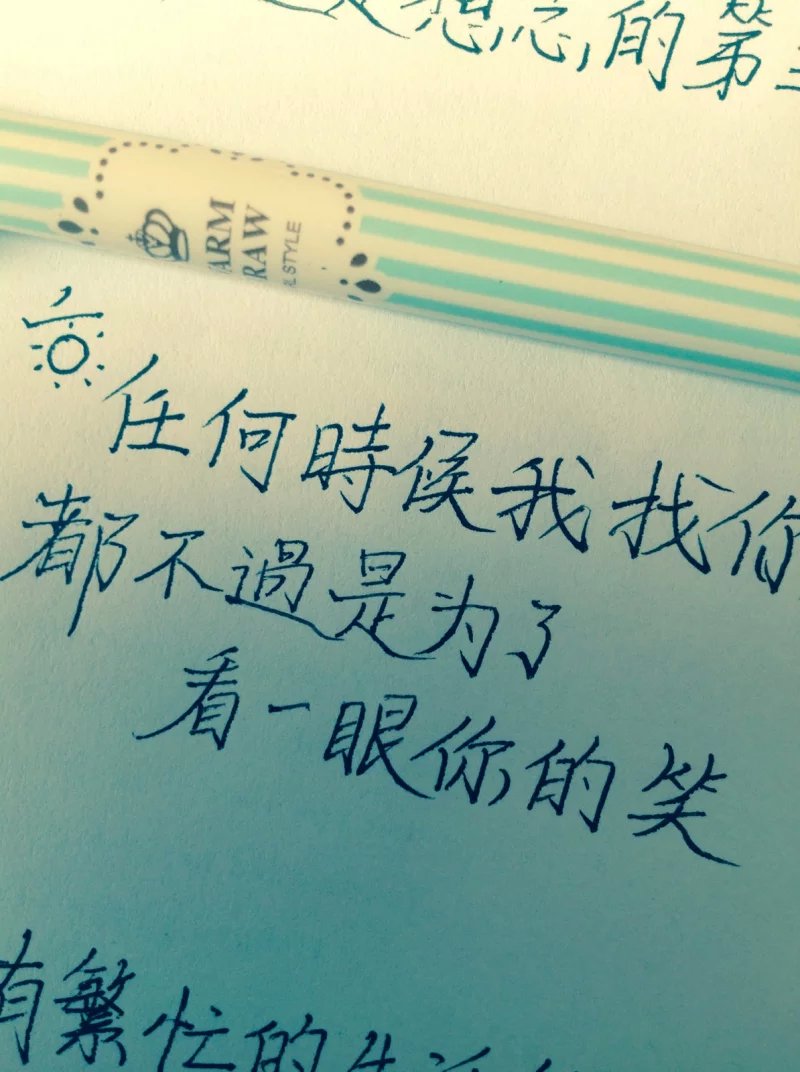 想念的第
ARM
RAW
STYLE
任何時候我找你
都不過是为了
看一眼你的笑
有繁忙的生活